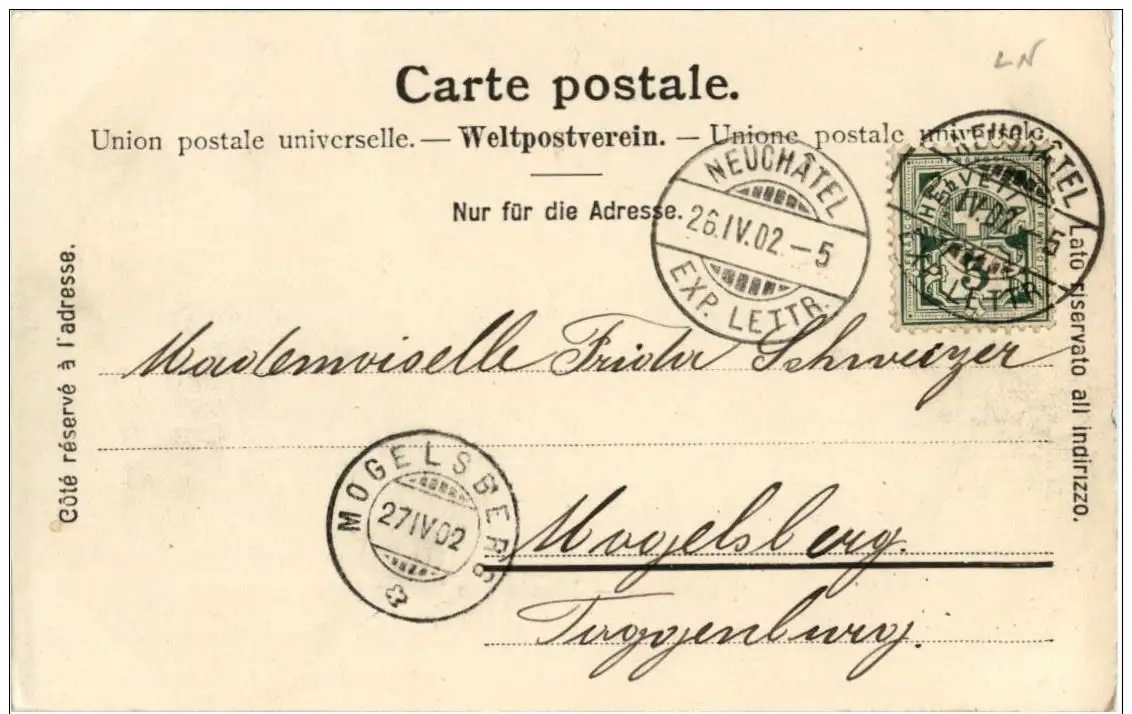 LN
Carte postale.
Union postale universelle. — Weltpostverein. — Unione postale universale.
Nur für die Adresse.
NEUCHÂTEL
26.IV.02.–5
EXP. LETTR.
NEUCHÂTEL
IV.02 – 5
LETTR.
HELVETIA
5
Côté réservé à l'adresse.
Lato riservato all indirizzo.
Mademoiselle Frida Schweizer
MOGELSBERG
27 IV 02
Mogelsberg.
Toggenburg.